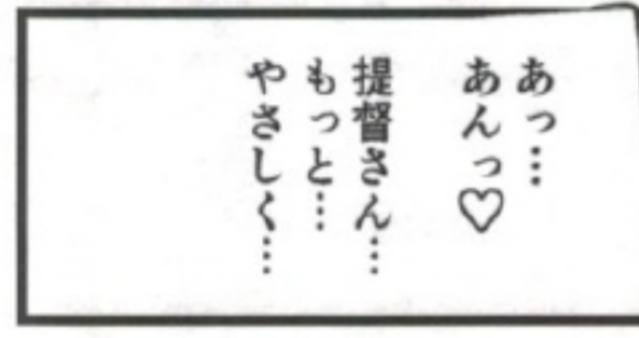 あっ…
あんっ♡
提督さん…
もっと…
やさしく…